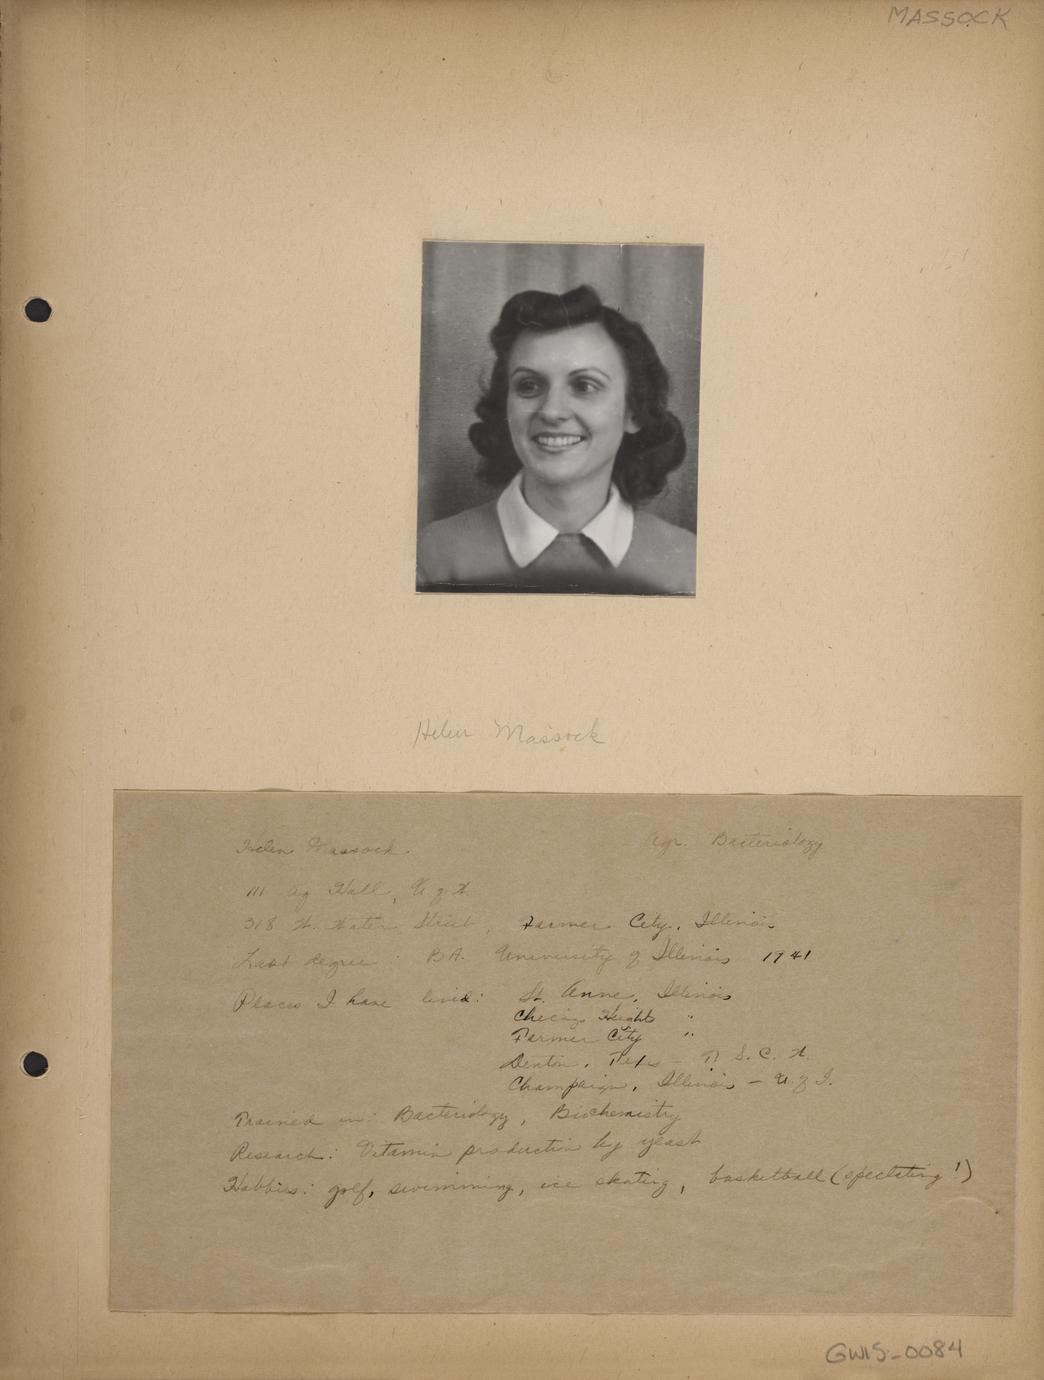 MASSOCK
Helen Massock
Helen Massock Agr. Bacteriology
111 Ag Hall, U. of W.
318 W. Water Street, Farmer City, Illinois
Last degree: B.A. University of Illinois 1941
Places I have lived: St. Anne, Illinois
Chicago Heights "
Farmer City "
Denton, Texas - T. S. C. W.
Champaign, Illinois - U. of I.
Trained in: Bacteriology, Biochemistry
Research: Vitamin production by yeast
Hobbies: golf, swimming, ice skating, basketball (spectating!)
GWIS-0084